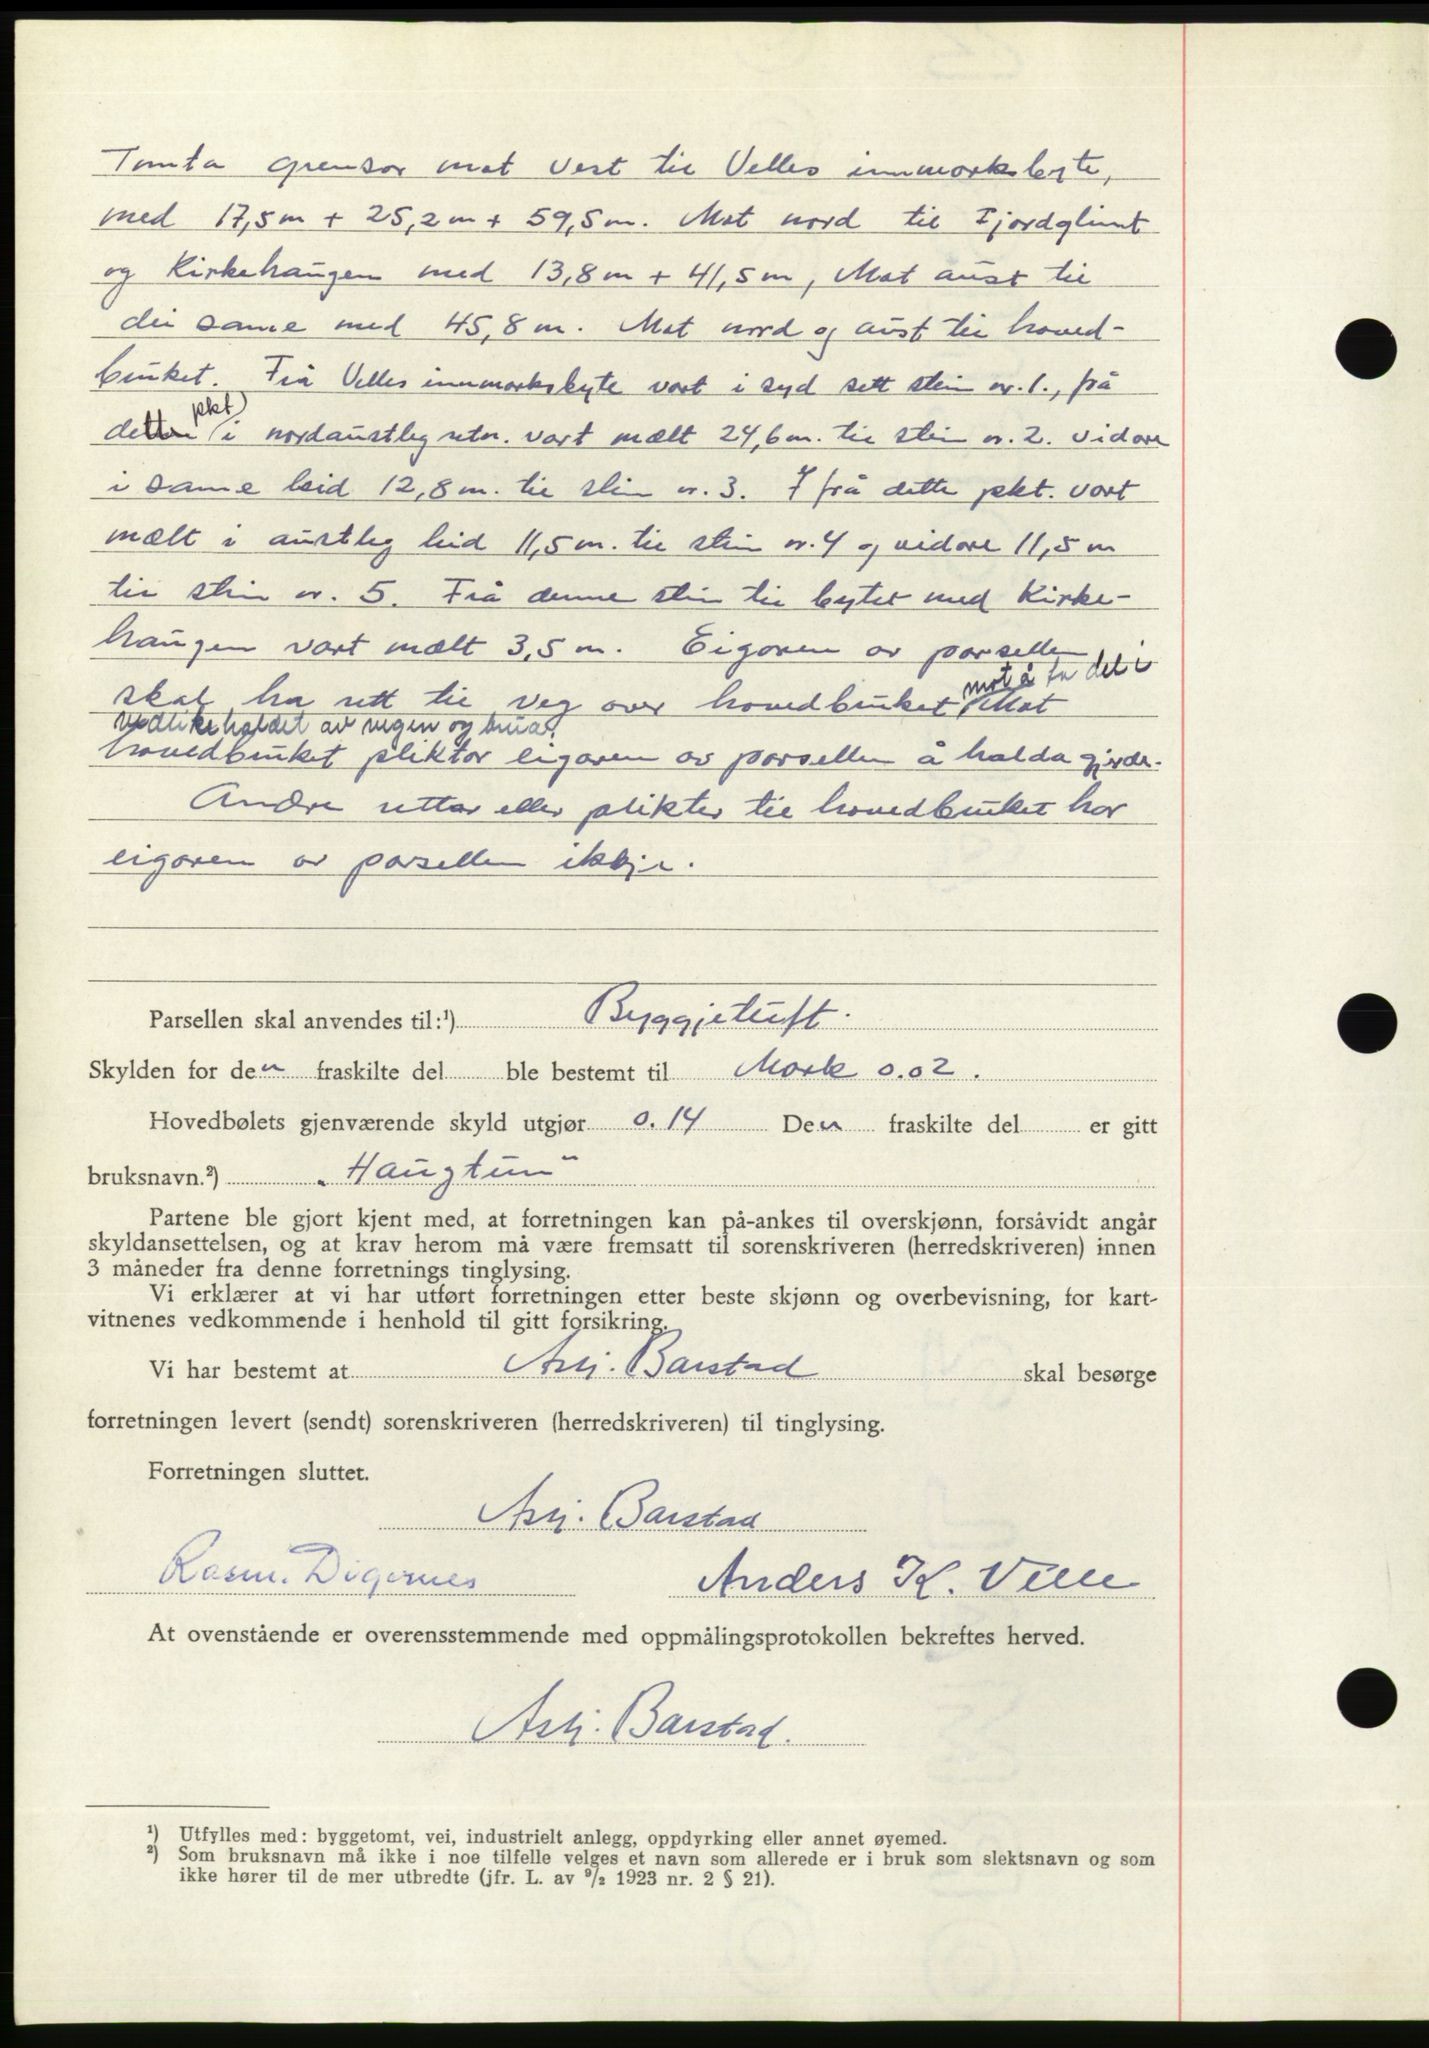 Tomta grensar mot vest til Velles innmarksbyte,
med 17,5 m + 25,2 m + 59,5 m. Mot nord til Fjordglimt
og Kirkehaugen med 13,8 m + 41,5 m, Mot aust til
dei same med 45,8 m. Mot nord og aust til hoved-
bruket. Frå Velles innmarksbyte vart i syd sett stein nr. 1., frå
dette pkt) i nordaustleg retn. vart mælt 24,6 m. til stein nr. 2. vidare
i same leid 12,8 m. til stein nr. 3. Ifrå dette pkt. vart
mælt i austleg leid 11,5 m. til stein nr. 4 og vidare 11,5 m
til stein nr. 5. Frå denne stein til bytet med Kirke-
haugen vart mælt 3,5 m. Eigaren av parsellen
skal ha rett til veg over hovedbruket mot å ta del i
vedlikehaldet av vegen og brua. Mot
hovedbruket pliktar eigaren av parsellen å halda gjerde.
Andre rettar eller plikter til hovedbruket har
eigaren av parsellen ikkje.
Parsellen skal anvendes til:¹) Byggjetuft.
Skylden for den fraskilte del ble bestemt til Mark 0.02.
Hovedbølets gjenværende skyld utgjør 0.14 Den fraskilte del er gitt
bruksnavn.²) „Haugtun"
Partene ble gjort kjent med, at forretningen kan på-ankes til overskjønn, forsåvidt angår
skyldansettelsen, og at krav herom må være fremsatt til sorenskriveren (herredskriveren) innen
3 måneder fra denne forretnings tinglysing.
Vi erklærer at vi har utført forretningen etter beste skjønn og overbevisning, for kart-
vitnenes vedkommende i henhold til gitt forsikring.
Vi har bestemt at Asbj. Barstad skal besørge
forretningen levert (sendt) sorenskriveren (herredskriveren) til tinglysing.
Forretningen sluttet.
Asbj. Barstad
Rasm. Digernes Anders K. Velle
At ovenstående er overensstemmende med oppmålingsprotokollen bekreftes herved.
Asbj. Barstad.
¹) Utfylles med: byggetomt, vei, industrielt anlegg, oppdyrking eller annet øyemed.
²) Som bruksnavn må ikke i noe tilfelle velges et navn som allerede er i bruk som slektsnavn og som
ikke hører til de mer utbredte (jfr. L. av ⁹/₂ 1923 nr. 2 § 21).